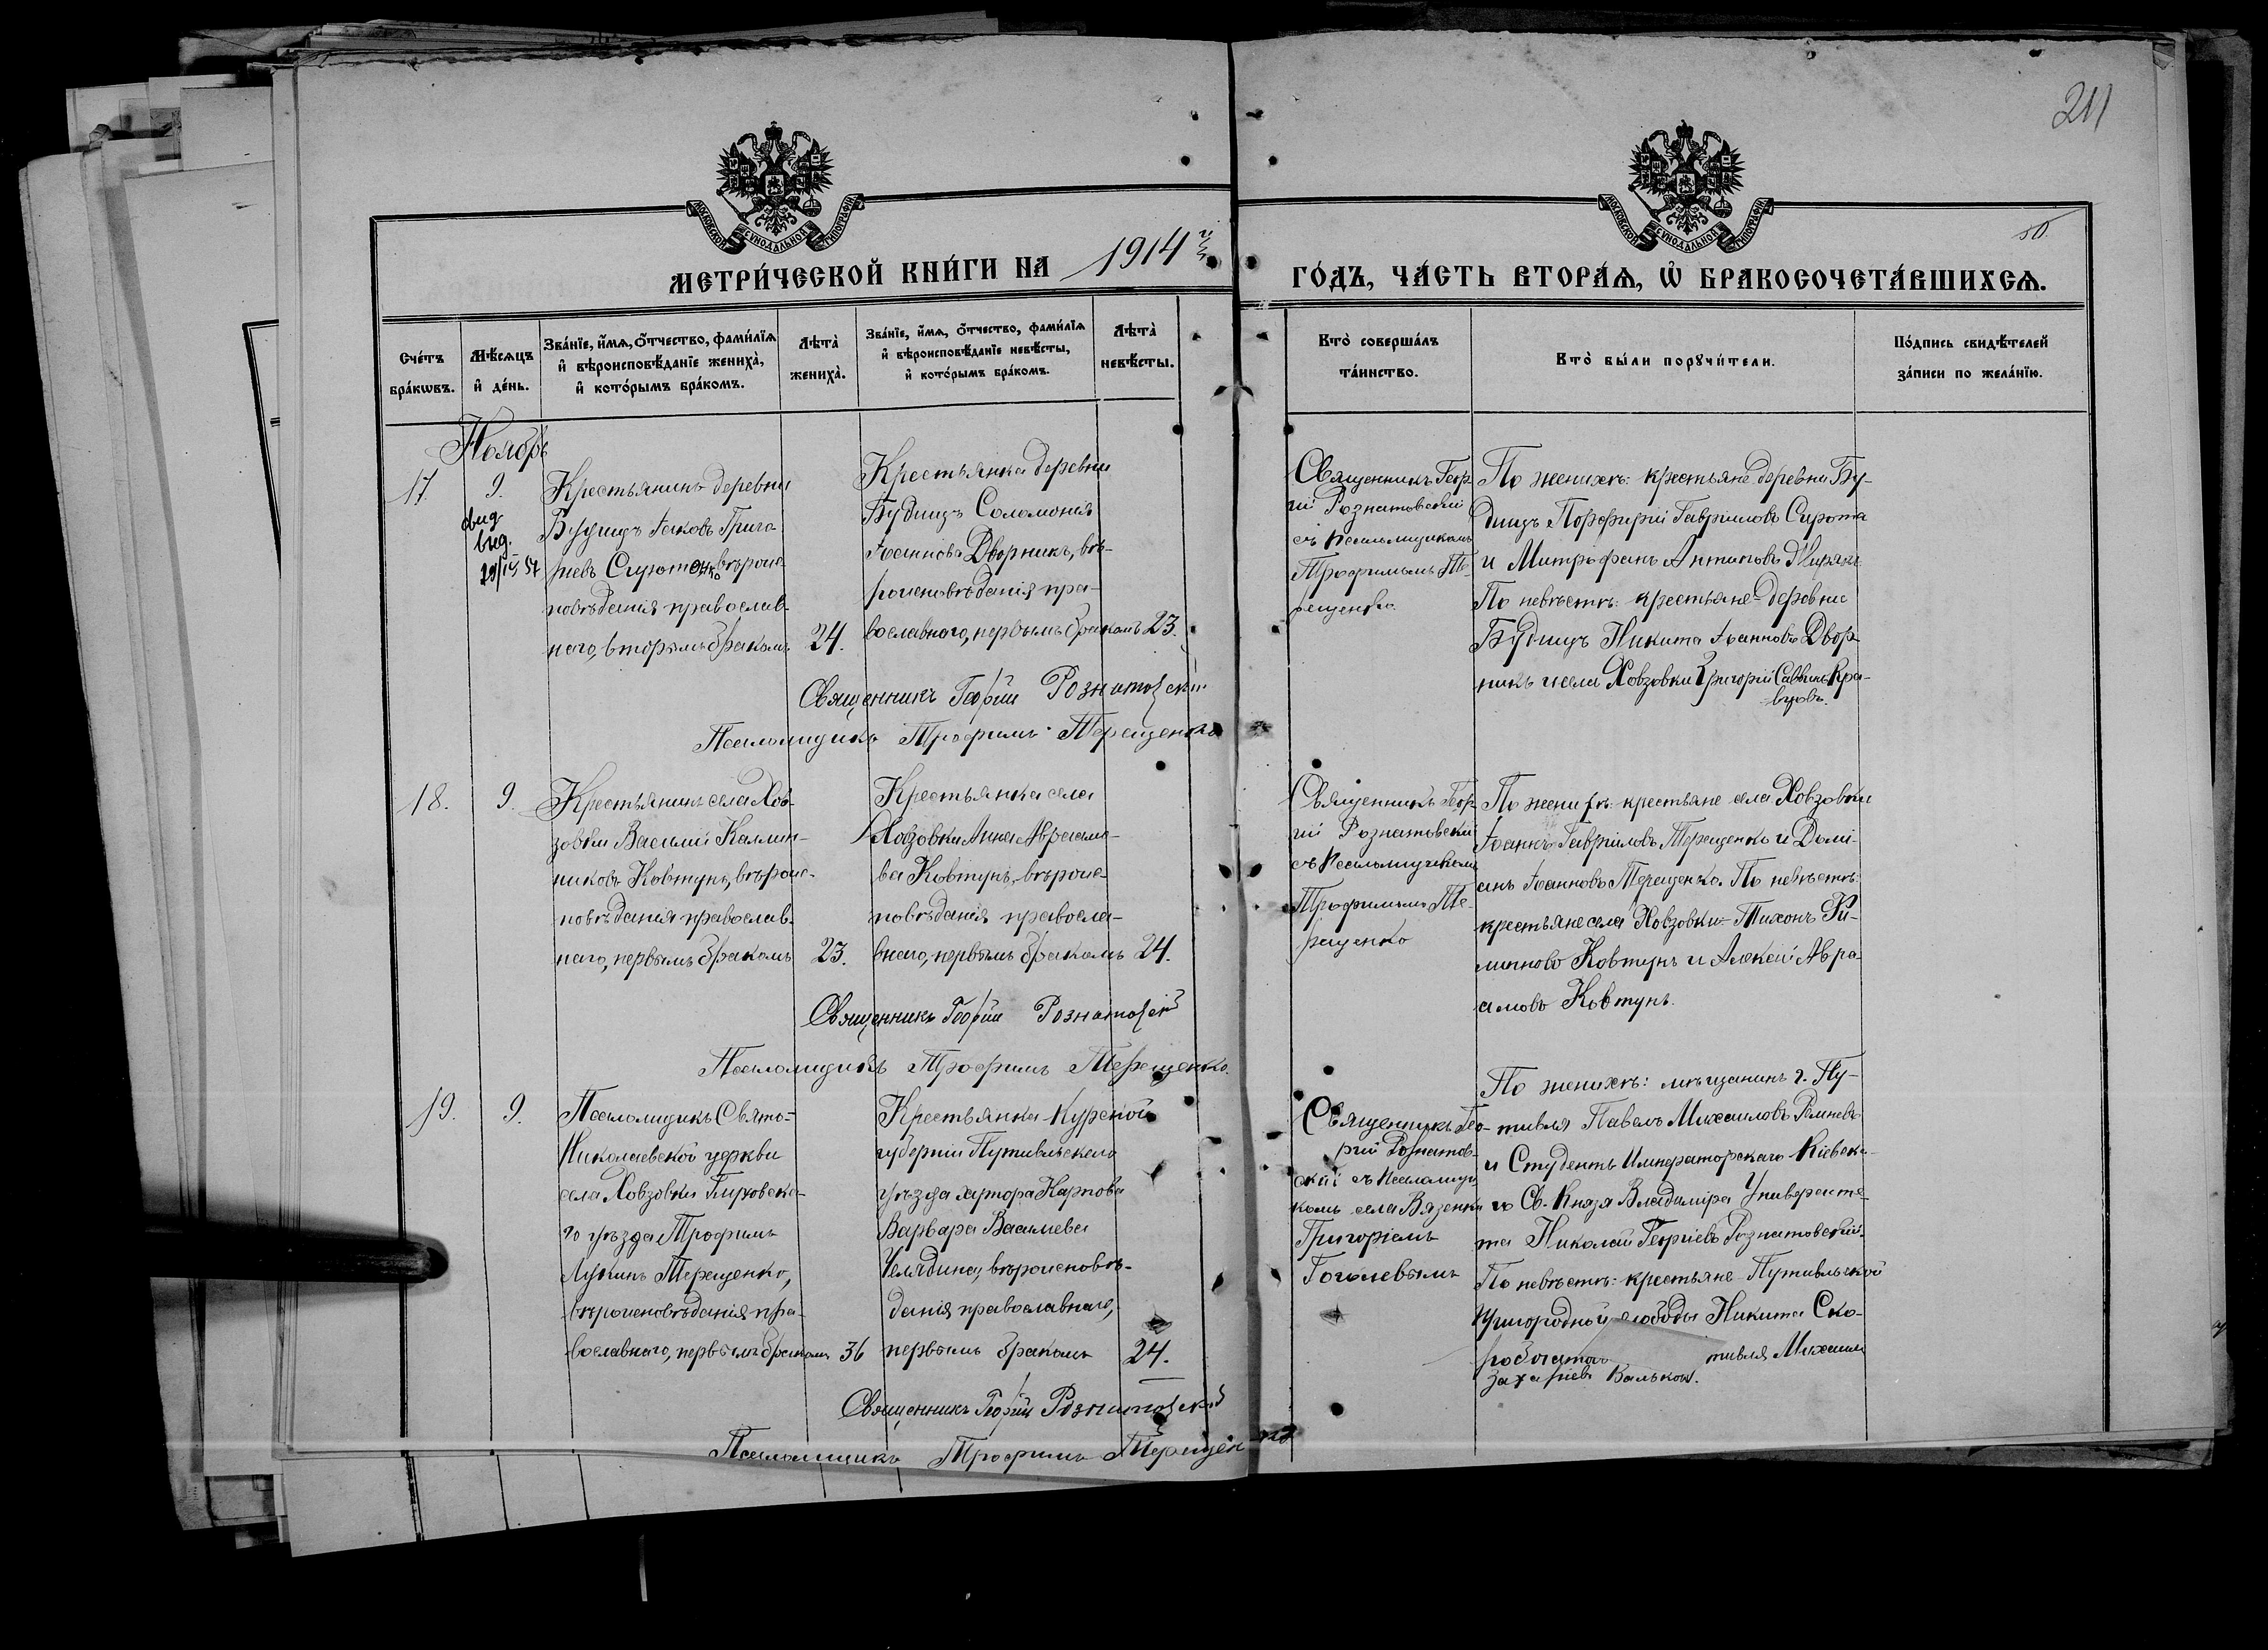 211
50
МЕТРИ́ЧЕСКОЙ КНИ́ГИ НА 1914й
ГО́ДЪ, ЧА́СТЬ ВТОРА́Я, Ѡ҆ БРАКОСОЧЕТА́ВШИХСЯ.
МОСКОВСКОЙ СѴНОДАЛЬНОЙ ТИПОГРАФІИ
МОСКОВСКОЙ СѴНОДАЛЬНОЙ ТИПОГРАФІИ
Сче́тъ бра́кѡвъ.
Мѣ́сяцъ и҆ де́нь.
Зва́нїе, и҆́мя, ѻ҆́тчество, фами́лїя и҆ вѣроисповѣ́данїе жениха̀, и҆ кото́рымъ бра́комъ.
Лѣта̀ жениха̀.
Зва́нїе, и҆́мя, ѻ҆́тчество, фами́лїя и҆ вѣроисповѣ́данїе невѣ́сты, и҆ кото́рымъ бра́комъ.
Лѣта̀ невѣ́сты.
Кто̀ соверша́лъ та́инство.
Кто̀ бы́ли порꙋчи́тели.
По́дпись свидѣ́телей за́писи по жела́нїю.
Ноябрь
17
9.
свид.
выд.
Крестьянинъ деревни
Будищъ Іаковъ Григо-
рiевъ Сиротенко, вѣроис-
повѣданія православ-
наго, вторымъ бракомъ
24.
Крестьянка деревни
Будищъ Соломонія
Іоаннова Дворникъ, вѣ-
роисповѣданія пра-
вославнаго, первымъ бракомъ 23.
Священникъ Геор-
гій Рознатовскій
съ псаломщикомъ
Трофимомъ Те-
рещенко.
По женихѣ: крестьяне деревни Бу-
дищъ Порфирій Гавріиловъ Сирота
и Митрофанъ Антиповъ
По невѣстѣ: крестьяне деревни
Будищъ Никита Іоанновъ Двор-
никъ и села Ховзовки Григорій Саввинъ Кра-
вцовъ.
Священникъ Георгій Рознатовскій
Псаломщикъ Трофимъ Терещенко
18.
9.
Крестьянинъ села Хов-
зовки Василій Каллин-
никовъ Ковтунъ, вѣроис-
повѣданія православ-
наго, первымъ бракомъ
23.
Крестьянка села
Ховзовки Анна Авраамо-
ва Ковтунъ, вѣроис-
повѣданія правосла-
внаго, первымъ бракомъ 24.
Священникъ Геор-
гій Рознатовскій
съ псаломщикомъ
Трофимомъ Те-
рещенко
По женихѣ: крестьяне села Ховзовки
Іоаннъ Гавріиловъ Терещенко и Домі-
анъ Іоанновъ Терещенко. По невѣстѣ:
крестьяне села Ховзовки Тихонъ Фи-
липповъ Ковтунъ и Алексій Авра-
амовъ Ковтунъ.
Священникъ Георгій Рознатовскій
Псаломщикъ Трофимъ Терещенко.
19.
9.
Псаломщикъ Свято-
Николаевской церкви
села Ховзовки Глуховска-
го уѣзда Трофимъ
Лукинъ Терещенко,
вѣроисповѣданія пра-
вославнаго, первымъ бракомъ
36
Крестьянка Курской
губерніи Путивльскаго
уѣзда хутора Карпова
Варвара Васильева
Челядина, вѣроисповѣ-
данія православнаго,
первымъ бракомъ
24.
Священникъ Гео-
ргій Рознатов-
скій съ псаломщи-
комъ села Вязенки
Григоріемъ
Гоголевымъ
По женихѣ: мѣщанинъ г. Пу-
тивля Павелъ Михаиловъ
и Студентъ Императорскаго Кіевска-
го Св. Князя Владиміра Университе-
та Николай Георгіевъ Рознатовскій.
По невѣстѣ: крестьяне Путивльской
Пригородной слободы Никита Ско-
робогатов тивля Михаилъ
Захаріевъ Вальков.
Священникъ Георгій Рознатовскій
Псаломщикъ Трофимъ Терещенко